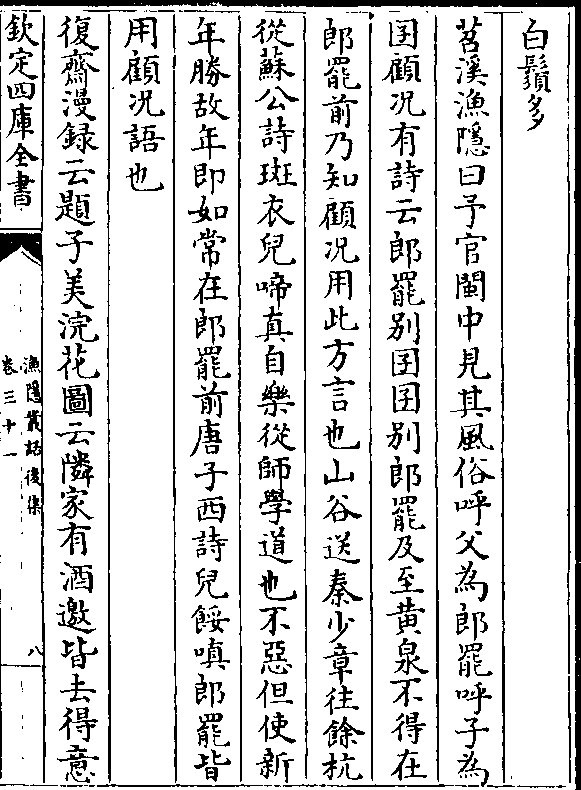 白鬚多
苕溪漁隱曰予官閩中見其風俗呼父為郎罷呼子為
囝顧况有詩云郎罷别囝囝别郎罷及至黄泉不得在
郎罷前乃知顧况用此方言也山谷送秦少章往餘杭
從蘇公詩斑衣兒啼真自樂從師學道也不惡但使新
年勝故年即如常在郎罷前唐子西詩兒餒嗔郎罷皆
用顧况語也
復齋漫録云題子美浣花圖云隣家有酒邀皆去得意
欽定四庫全書
漁隱叢話後集
卷三十一
八